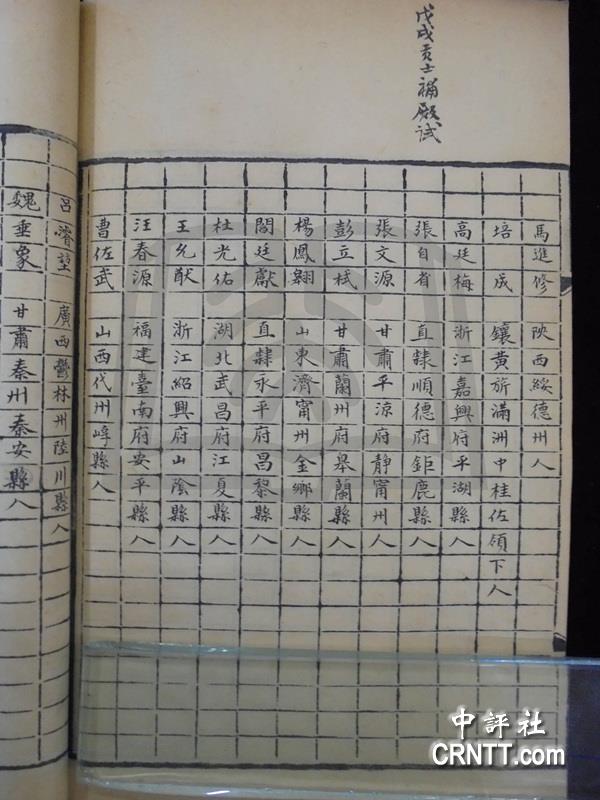 戊戌貢士補殿試
馬進修 陝西綏德州人
培成 鑲黃旂滿洲中桂佐領下人
高廷梅 浙江嘉興府平湖縣人
張自省 直隸順德府鉅鹿縣人
張文源 甘肅平涼府靜甯州人
彭立栻 甘肅蘭州府皋蘭縣人
楊鳳翱 山東濟甯州金鄉縣人
閻廷獻 直隸永平府昌黎縣人
杜光佑 湖北武昌府江夏縣人
王允猷 浙江紹興府山陰縣人
汪春源 福建臺南府安平縣人
曹佐武 山西代州崞縣人
呂濬堃 廣西鬱林州陸川縣人
魏垂象 甘肅秦州秦安縣人
中評社
CRNTT.com